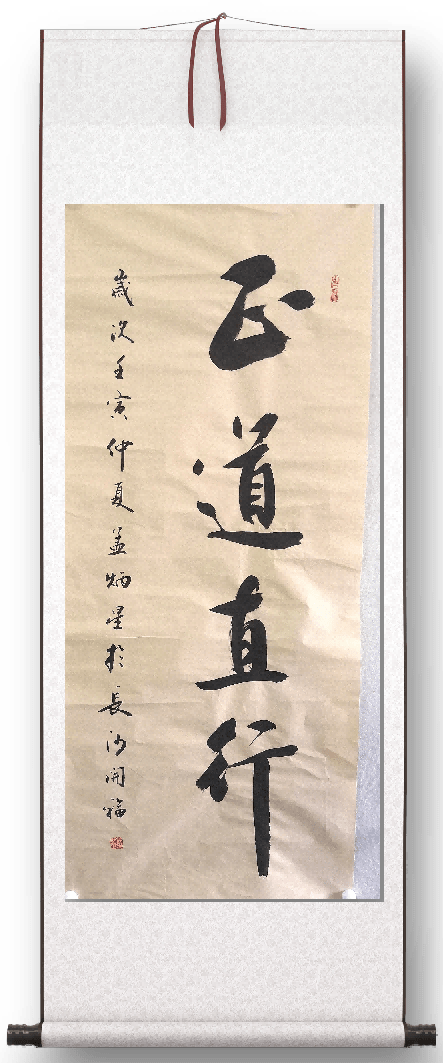 正道直行
歲次壬寅仲夏孟炳星於長沙開福